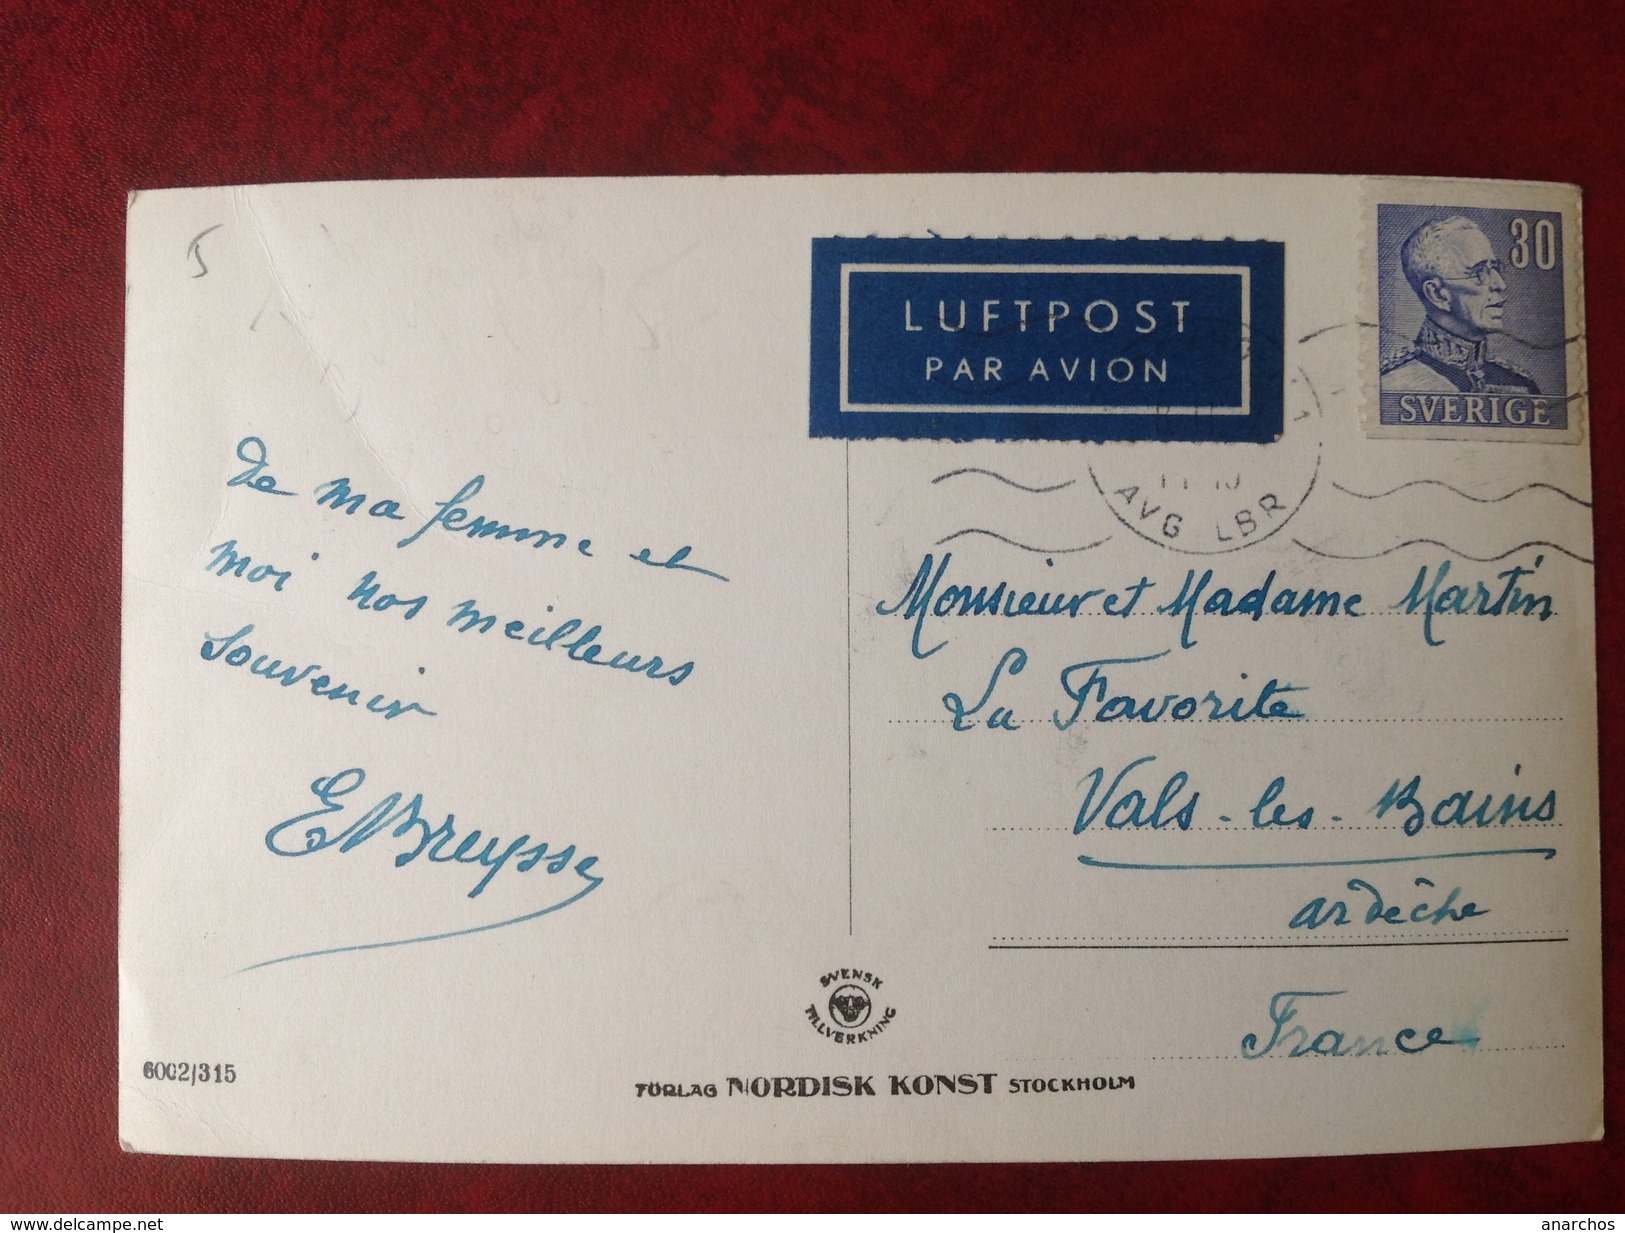 5
LUFTPOST
PAR AVION
30
SVERIGE
AVG LBR
De ma femme et
moi nos meilleurs
souvenir
E Breysse
Monsieur et Madame Martin
La Favorite
Vals-les-Bains
ardèche
France
SVENSK
TILLVERKNING
6002/315
FÖRLAG NORDISK KONST STOCKHOLM
www.delcampe.net
anarchos